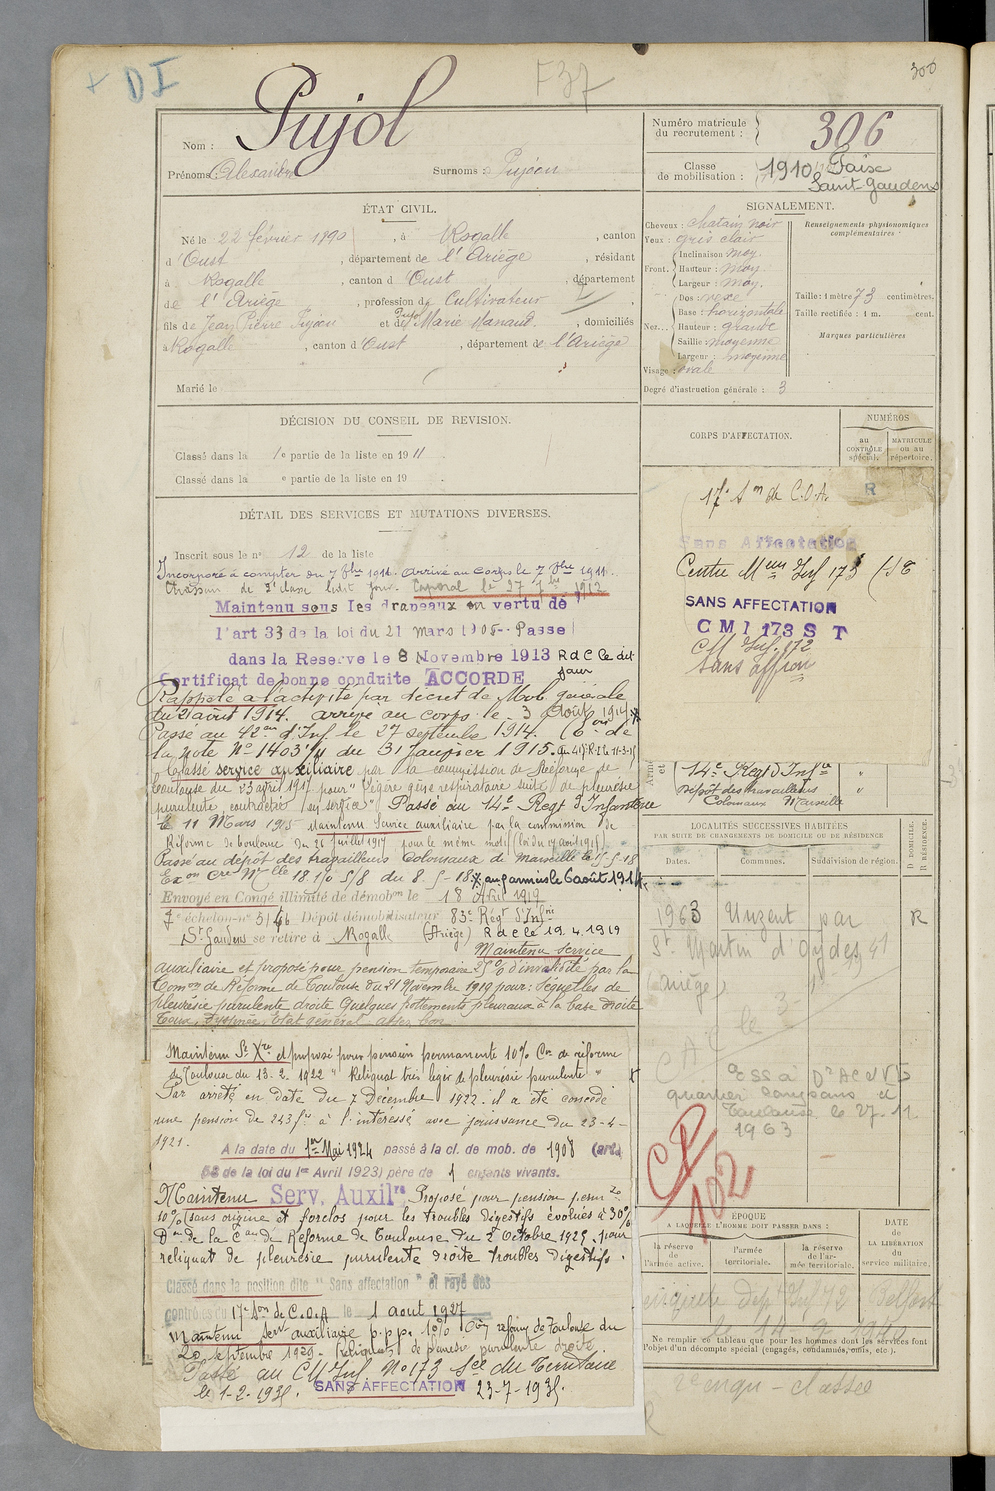 + DI
F37
300
Nom : Pujol
Prénoms : Alexandre Surnoms : Pujòou
Numéro matricule du recrutement : 306
Classe de mobilisation : 1910
Saint-Gaudens
ÉTAT CIVIL.
Né le 22 février 1890, à Rogalle, canton
d'Oust, département de l'Ariège, résidant
à Rogalle, canton d'Oust, département
de l'Ariège, profession de Cultivateur
fils de Jean Pierre et de Marie Manaud, domiciliés
à Rogalle, canton d'Oust, département de l'Ariège
Marié le
SIGNALEMENT.
Cheveux : chatain noir
Yeux : gris clair
Front. Inclinaison : moy.
Hauteur : moy.
Largeur : moy.
Nez... Dos : vexe
Base : horizontale
Hauteur : grande
Saillie : moyenne
Largeur : moyenne
Visage : ovale
Degré d'instruction générale : 3
Renseignements physionomiques complémentaires :
Taille : 1 mètre 73 centimètres.
Taille rectifiée : 1 m. cent.
Marques particulières
DÉCISION DU CONSEIL DE REVISION.
Classé dans la 1e partie de la liste en 1911
Classé dans la e partie de la liste en 19 .
DÉTAIL DES SERVICES ET MUTATIONS DIVERSES.
Inscrit sous le n° 12 de la liste
Incorporé à compter du 7 8bre 1911. Arrivé au corps le 7 8bre 1911.
Chasseur de 2e classe ledit jour. Caporal le 27 7bre 1912
Maintenu sous les drapeaux en vertu de
l'art 33 de la loi du 21 mars 1905-- Passé
dans la Reserve le 8 Novembre 1913 R d C le dit jour
Certificat de bonne conduite ACCORDE
Rappelé à l'activité par décret de Mob générale
du 21 août 1914. arrivé au corps le 3 Août 1914
Passé au 42em d'Inf. le 27 septembre 1914.
la note N° 1403 du 31 Janvier 1915.
Classé service auxiliaire par la commission de Réforme de
Toulouse du 23 avril 1917 pour " Légère gêne respiratoire suite de pleurésie
purulente, contractée en service". Passé au 14e Regt d'Infanterie
le 11 Mars 1915 Maintenu service auxiliaire par la commission de
Réforme de Toulouse du 26 juillet 1917 pour le même motif (loi du 17 août 1915)
Passé au dépot des travailleurs Coloniaux de Marseille le
du 8-5-18. aux armées le 6 août 1914
Envoyé en Congé illimité de démobon le 18 Avril 1919
7e échelon-n° 5146 Dépôt démobilisateur 83e Régt d'Infrie
St Gaudens se retire à Rogalle (Ariège) R d C le 19.4.1919
Maintenu service
auxiliaire et proposé pour pension temporaire 25% d'invalidité par la
Comon de Réforme de Toulouse du 21 Novembre 1919 pour : Séquelles de
pleurésie purulente droite Quelques frottements pleuraux à la base droite
Toux, dyspnée, état général assez bon
Maintenu Sce Xre et proposé pour pension permanente 10% Con de réforme
de Toulouse du 13.2.1922 " Reliquat très léger de pleurésie purulente "
Par arrêté en date du 7 Decembre 1922. il a été concédé
une pension de 243 frs à l'intéressé avec jouissance du 23-4-
1921.
A la date du 1er Mai 1924 passé à la cl. de mob. de 1908 (art.
58 de la loi du 1er Avril 1923) père de 1 enfants vivants.
Maintenu Serv. Auxilre Proposé pour pension perm
10% (sans origine et forclos pour les troubles digestifs évolués à 30%
Don de la Con de Réforme de Toulouse du 2 Octobre 1925. pour
reliquat de pleurésie purulente droite troubles digestifs.
Classé dans la position dite " Sans affectation " et rayé des
contrôles du 17e Son de C.O.A le 1 aout 1927
Maintenu Servt auxiliaire p.p.p. 10% Con reforme de Toulouse du
20 septembre 1929. (reliquat de pleurésie purulente droite.
Passé au CM Inf. N° 173 Sce du Territoire
le 1-2-193 . SANS AFFECTATION 23-7-193 .
CORPS D'AFFECTATION.
NUMÉROS
au CONTRÔLE spécial. MATRICULE ou au répertoire.
17e Son de C.O.A. R
Sans Affectation
Centre Meur Inf 173
SANS AFFECTATION
C M I 173 S T
CM Inf. 172
Sans affon
14e Regt d'Infie "
Dépôt des travailleurs "
Coloniaux Marseille
LOCALITÉS SUCCESSIVES HABITÉES
PAR SUITE DE CHANGEMENTS DE DOMICILE OU DE RÉSIDENCE
Dates. Communes. Subdivision de région. D DOMICILE. R RÉSIDENCE.
1963 Unzent par R
St Martin d'Oydes
(Ariège)
quartier Compans
Toulouse le 27.11
1963
CP
102
ÉPOQUE
A LAQUELLE L'HOMME DOIT PASSER DANS :
la réserve de l'armée active. l'armée territoriale. la réserve de l'armée territoriale.
DATE DE LA LIBÉRATION du service militaire.
Belfort
Ne remplir ce tableau que pour les hommes dont les services font
l'objet d'un décompte spécial (engagés, condamnés, omis, etc.).